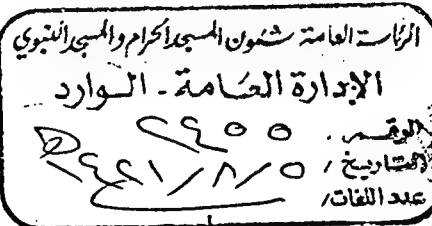 الرئاسة العامة شئون المسجد الحرام والمسجد النبوي
الإدارة العامة - الوارد
الرقم، ٢٤٥٥
التاريخ / ٥ / ٨ / ١٤٢١هـ
عدد اللفات /